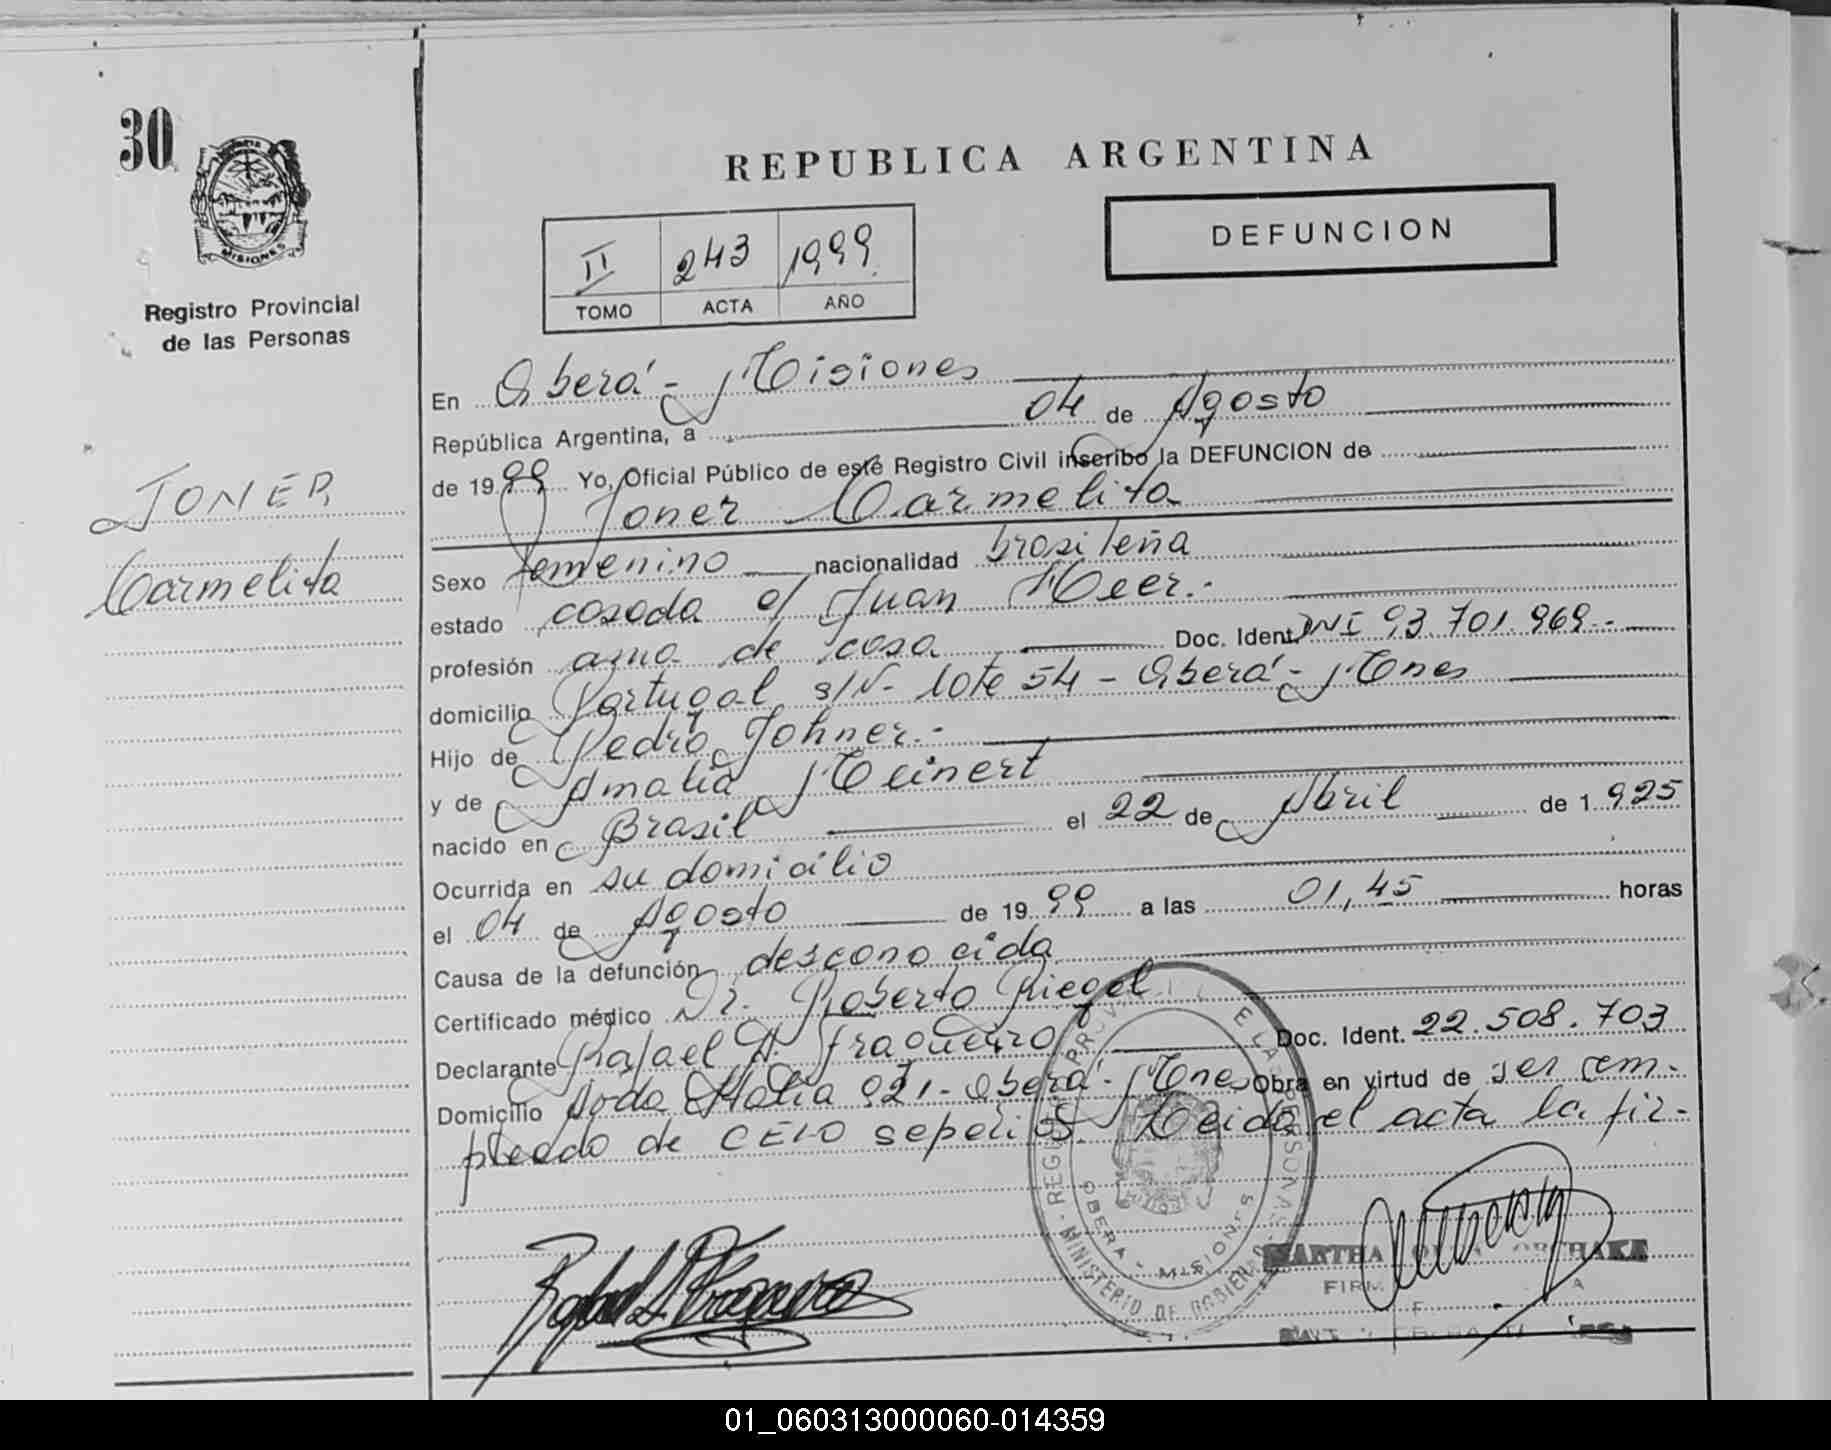 30
MISIONES
Registro Provincial
de las Personas
JONER
Carmelita
REPUBLICA ARGENTINA
II 243 1999
TOMO ACTA AÑO
DEFUNCION
En Oberá - Misiones
República Argentina, a 04 de Agosto
de 1999 Yo, Oficial Público de esté Registro Civil inscribo la DEFUNCION de
Joner Carmelita
Sexo femenino nacionalidad brasileña
estado casada c/ Juan Meer.-
profesión ama de casa Doc. Ident. DNI 93.701.969.-
domicilio Portugal s/N- lote 54 - Oberá - Mones
Hijo de Pedro Johner.-
y de Amalia Meinert
nacido en Brasil el 22 de Abril de 1.925
Ocurrida en su domicilio
el 04 de Agosto de 1999 a las 01,45 horas
Causa de la defunción desconocida
Certificado médico Dr. Roberto Riegel
Declarante Rafael A. Fragueiro Doc. Ident. 22.508.703
Domicilio Avda Italia 921 - Oberá - Mones Obra en virtud de ser em-
pleado de CELO sepelios. Leida el acta la fir-
MINISTERIO DE GOBIERNO
OBERA - MISIONES
MARTHA
01_060313000060-014359